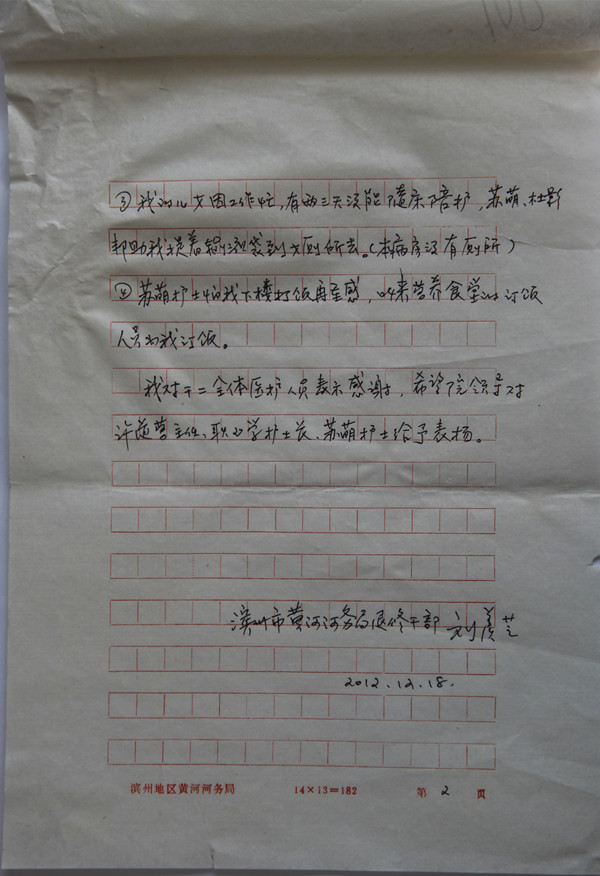 ③我的儿女因工作忙,有两三天没能随床陪护,苏萌、杜影
帮助我提着输液袋到女厕所去。(本病房没有厕所)
④苏萌护士怕我下楼打饭再重感,叫来营养食堂的订饭
人员为我订饭。
我对于二全体医护人员表示感谢,希望院领导对
许主任、职小学护士长、苏萌护士给予表扬。
滨州市黄河河务局退休干部 刘芝
2012.12.18.
滨州地区黄河河务局 14×13=182 第 2 页